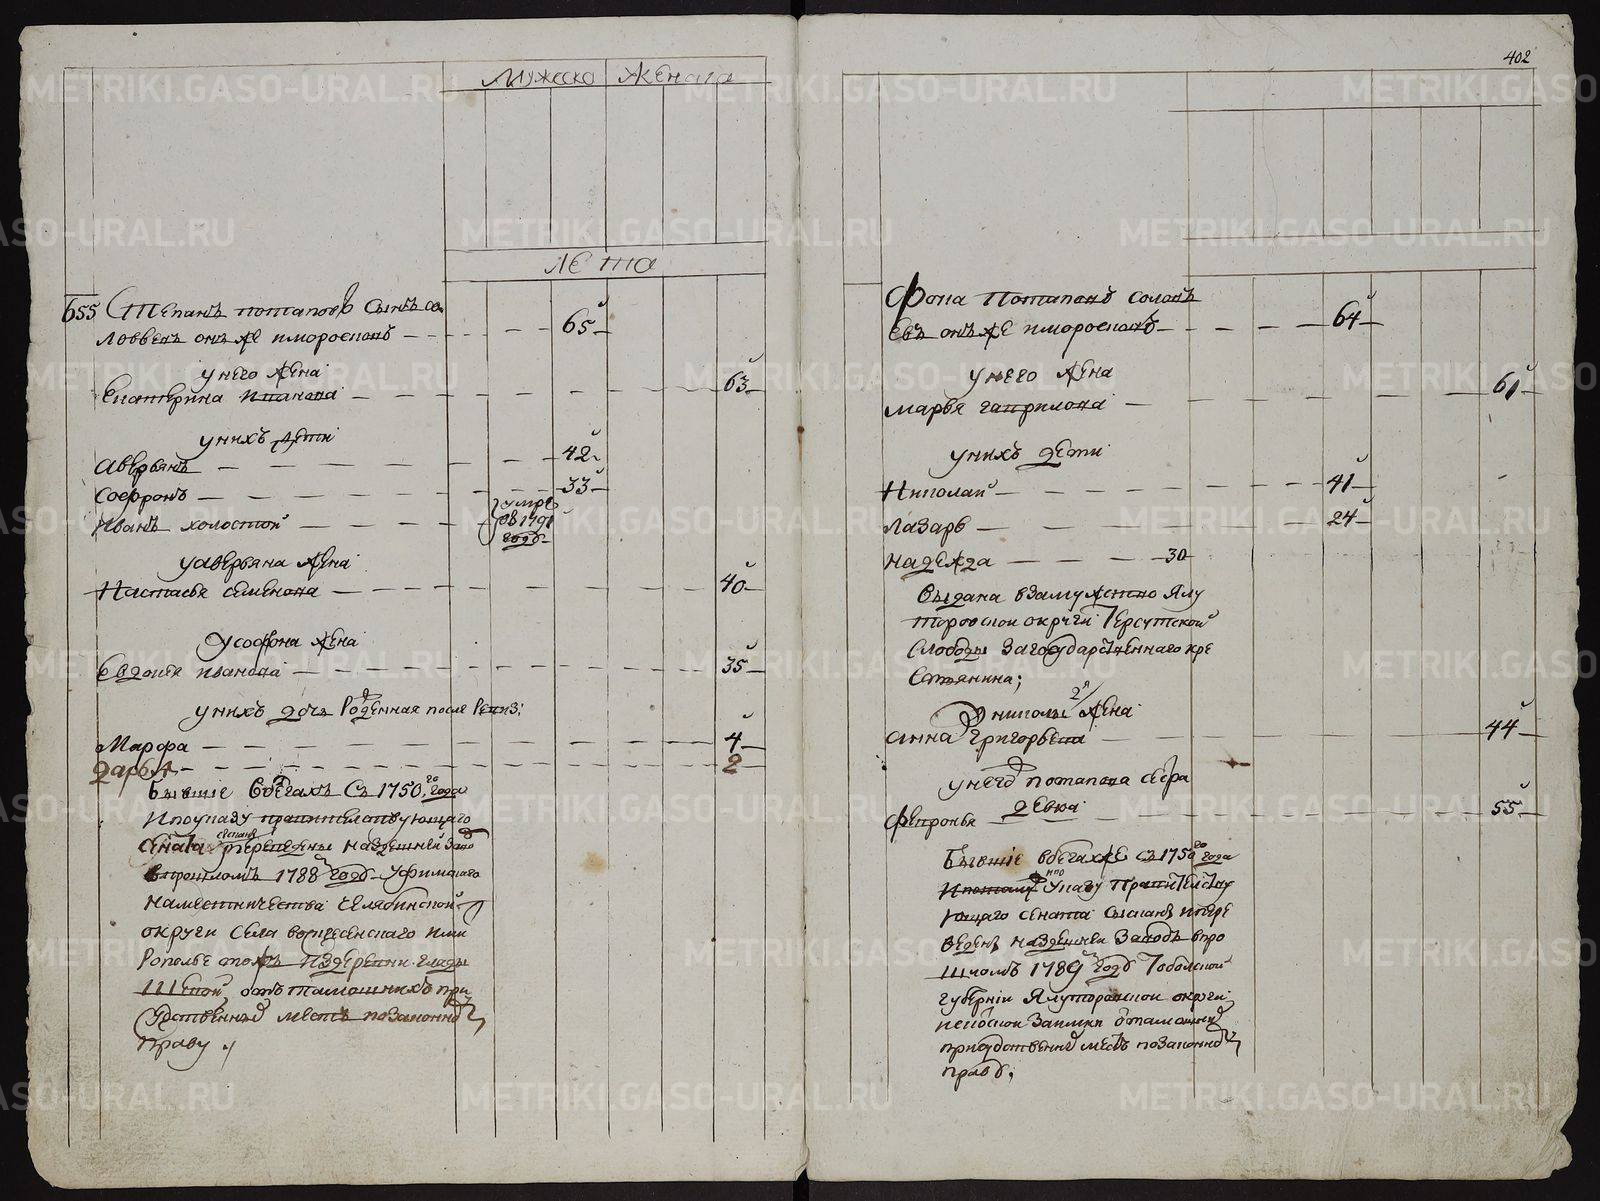 Мужеска Женска
Лета
655 Степанъ потаповъ сынъ со
ловвевъ онъ же имороеновъ 65
у него жена
Екатерина иванова 63
у нихъ дети
Аверьянъ 42
Софронъ 33
Иванъ холостой умре въ 1791 годе
у аверьяна жена
Настасья семенова 40
у софрона жена
Евдокея иванова 35
у нихъ дочь рожденная после ревиз:
Марфа 4
дарья 2
Бывшие в бегахъ съ 1750го года
и по указу правителствующаго
сената сысканы и переведены на здешней завод
в прошломъ 1788м годе Уфимскаго
наместничества челябинской
округи села воскресенскаго
тожъ из деревни
от тамошнихъ при
судственных местъ по законно
праву
402
Фока Потаповъ солов
евъ онъ же 64
у него жена
марья гаврилова 61
у нихъ дети
Николай 41
Лазарь 24
надежда 30
выдана в замужство Ялу
торовской округи Терсутской
слободы за государственнаго кре
стьянина;
у николы 2я жена
анна григорьева 44
у него потапова сестра
девка
Февронья 55
Бывшие в бегах же съ 1750го года
и по указу правителству
ющаго сената сысканъ и пере
веденъ на здешней заводъ в про
шломъ 1789м годе Тоболской
губернии Ялуторовской округи
заимки от тамошних
присудственных местъ по законно
праве;